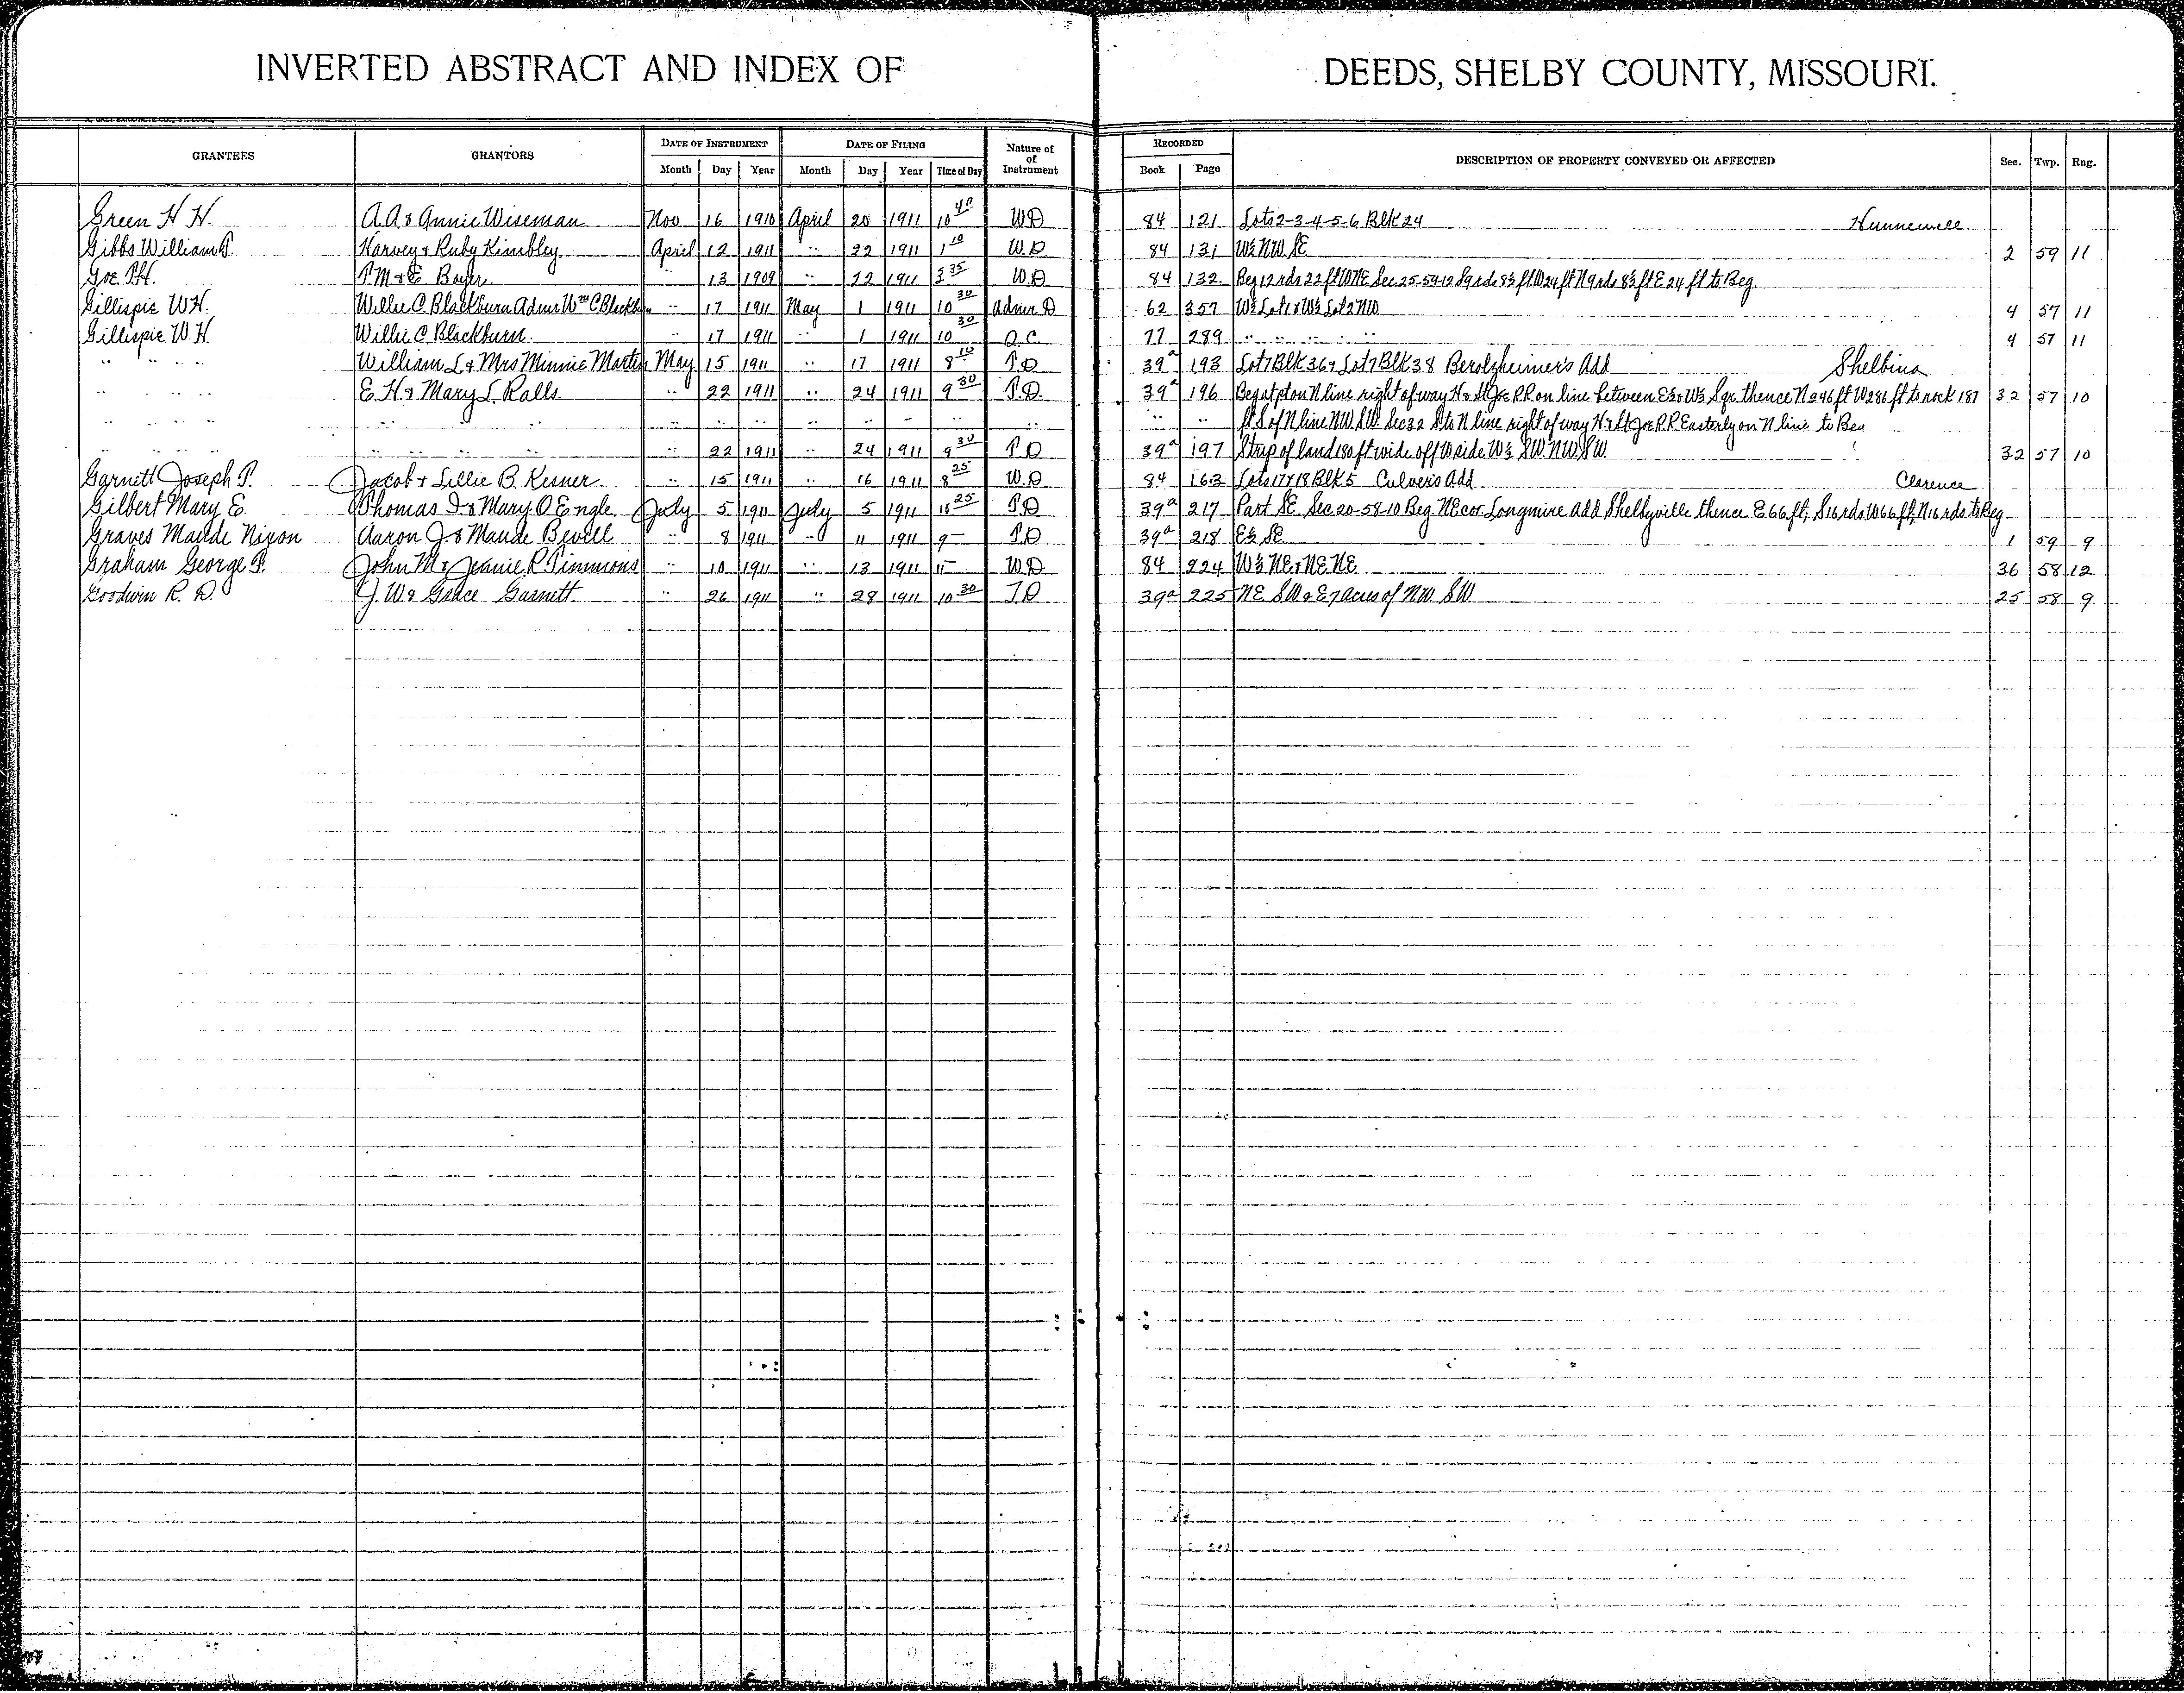 INVERTED ABSTRACT AND INDEX OF DEEDS, SHELBY COUNTY, MISSOURI.
GRANTEES GRANTORS DATE OF INSTRUMENT DATE OF FILING Nature of of Instrument RECORDED DESCRIPTION OF PROPERTY CONVEYED OR AFFECTED Sec. Twp. Rng.
Month Day Year Month Day Year Time of Day Book Page
Green H H. A.A. & Annie Wiseman Nov 16 1910 April 20 1911 10 40 WD 84 121 Lots 2-3-4-5-6 Blk 24 Hunnewell
Gibbs William P. Harvey & Ruby Kimbley April 12 1911 " 22 1911 1 10 W.D 84 131 W½ NW SE 2 59 11
Goe P.H. P.M & E Boyer 13 1909 " 22 1911 3 35 W.D 84 132 Beg 12 rds 22 ft W NE Sec 25-59-12 S 9 rds 8½ ft W 24 ft N 9 rds 8½ ft E 24 ft to Beg.
Gillispie W.H. Willie C. Blackburn Admr Wm C Blackburn " 17 1911 May 1 1911 10 30 Admr D 62 357 W½ Lot 1 & W½ Lot 2 NW 4 57 11
Gillespie W.H. Willie C. Blackburn. " 17 1911 " 1 1911 10 30 Q.C. 77 289 " " " " 4 57 11
" " " William L & Mrs Minnie Martin May 15 1911 " 17 1911 8 10 T.D 39a 193 Lot 7 Blk 36 & Lot 7 Blk 38 Berolzheimer's Add Shelbina
" " " E. H & Mary L. Ralls " 22 1911 " 24 1911 9 30 T.D. 39a 196 Beg at pt on N line right of way H & St Joe R.R on line between E½ & W½ Sqr. thence N 246 ft W 286 ft to rock 187 32 57 10
" " " " " " " " " " " ft S of N line NW SW Sec 32 S to N line right of way H & St Joe R.R Easterly on N line to Beg
" " " " " " 22 1911 24 1911 9 30 T D 39a 197 Strip of land 180 ft wide off W side W½ SW NW SW 32 57 10
Garnett Joseph P. Jacob & Lillie B. Kesner " 15 1911 " 16 1911 8 25 W.D 84 163 Lots 17 & 18 Blk 5 Culver's Add Clarence
Gilbert Mary E. Thomas I & Mary O Engle July 5 1911 July 5 1911 25 T.D 39a 217 Part SE Sec 20-58-10 Beg. NE cor Longmire Add Shelbyville thence E 66 ft, S 16 rds W 66 ft, N 16 rds to Beg.
Graves Maude Nixon Aaron J & Maude Bewell " 8 1911 " 11 1911 9 – T.D 39a 218 E½ SE 1 59 9
Graham George T. John M & Jeanie R Timmons " 10 1911 " 13 1911 11 – W.D 84 224 W½ NE & NE NE 36 58 12
Goodwin R. D. J. W & Grace Garnett " 26 1911 " 28 1911 10 30 T.D 39a 225 NE SW & E 7 acres of NW SW 25 58 9